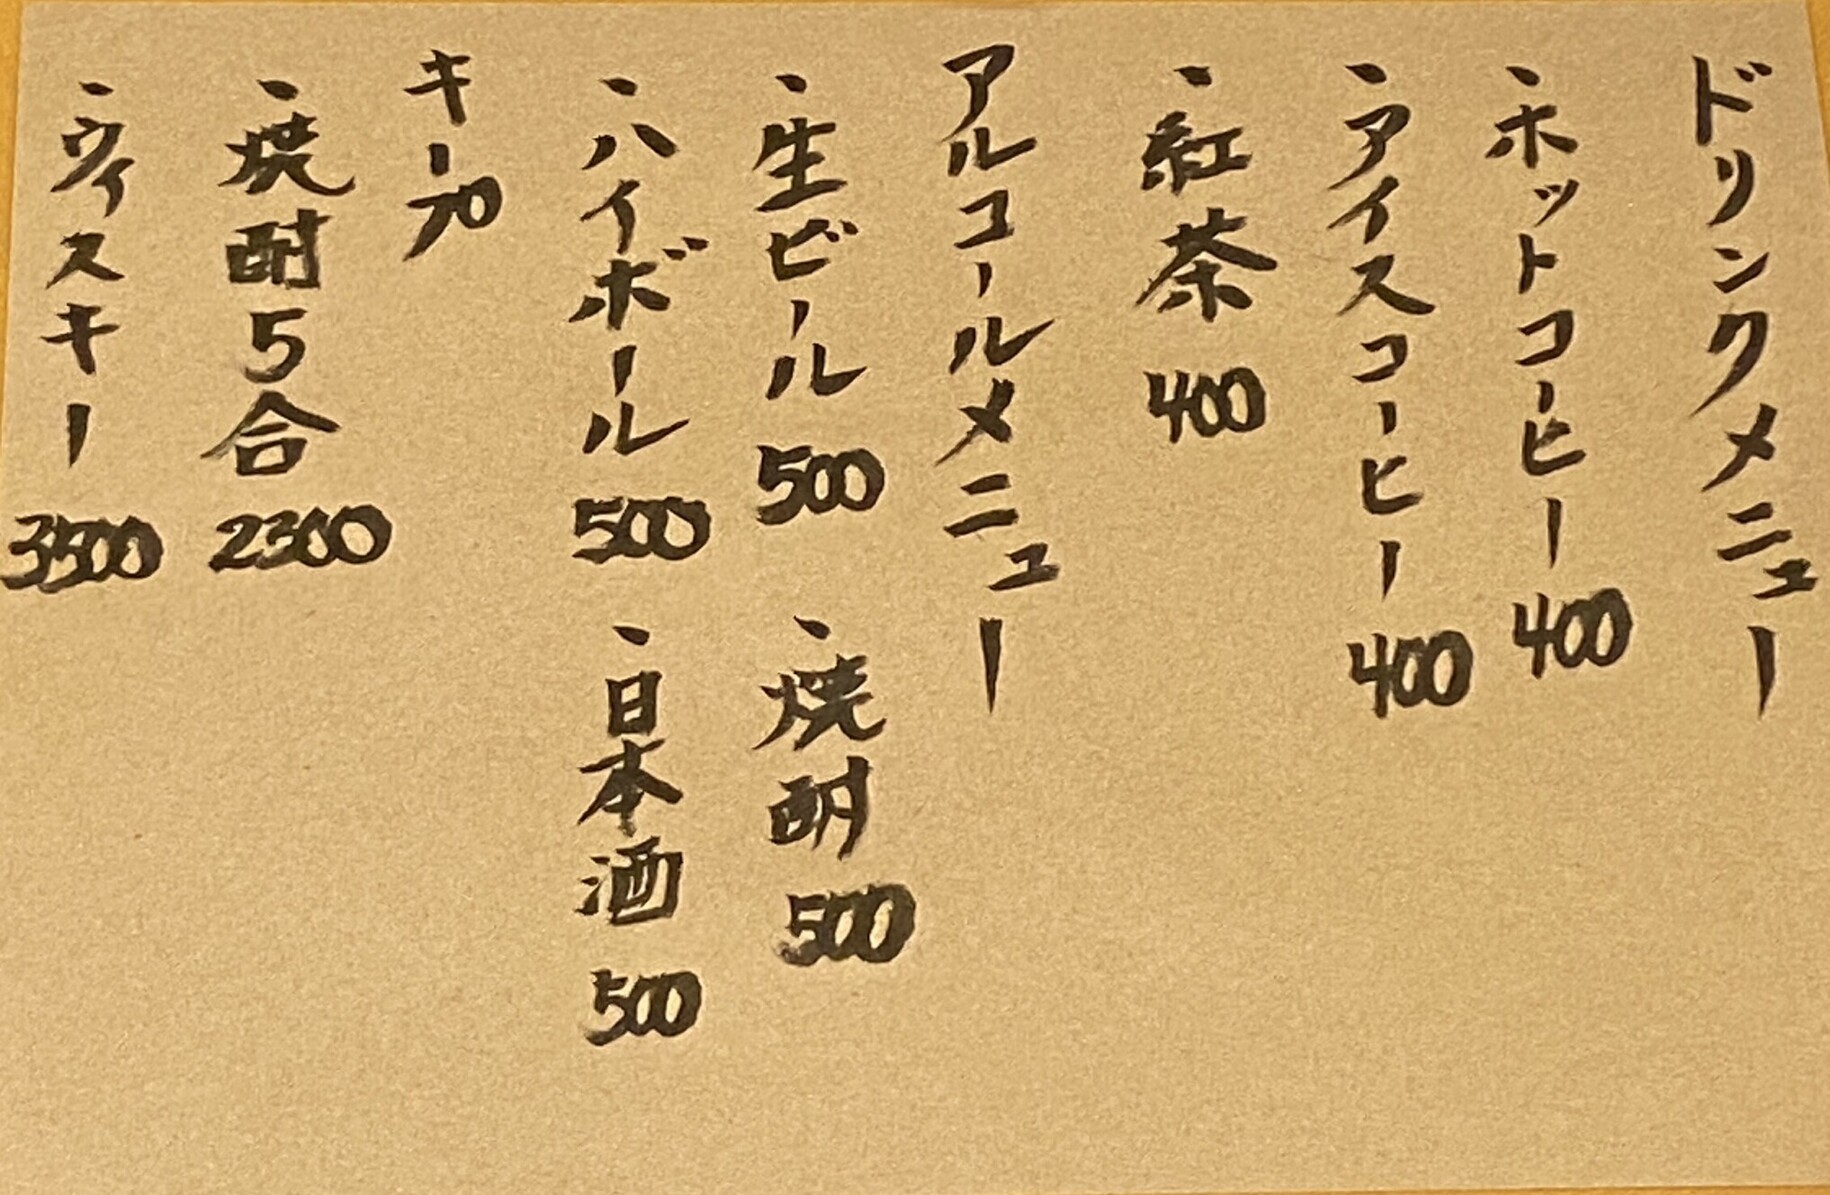 ドリンクメニュー
・ホットコーヒー 400
・アイスコーヒー 400
・紅茶 400
アルコールメニュー
・生ビール 500 ・焼酎 500
・ハイボール 500 ・日本酒 500
キープ
・焼酎5合 2300
・ウィスキー 3500